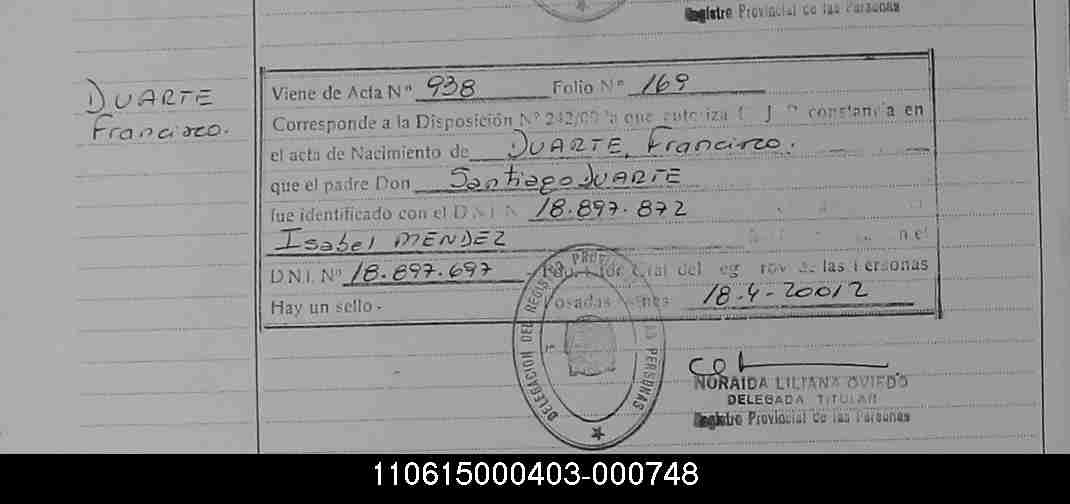 Registro Provincial de las Personas
DUARTE
Francisco.
Viene de Acta Nº 938 Folio Nº 169
Corresponde a la Disposición Nº 242/00 que autoriza constancia en
el acta de Nacimiento de DUARTE, Francisco.
que el padre Don Santiago DUARTE
fue identificado con el D.N.I. N 18.897.872
Isabel MENDEZ
D.N.I. Nº 18.897.697 de las Personas
Hay un sello.- Posadas 18-4-20012
DELEGACION DEL REGISTRO PERSONAS
NORAIDA LILIANA OVIEDO
DELEGADA TITULAR
Registro Provincial de las Personas
110615000403-000748